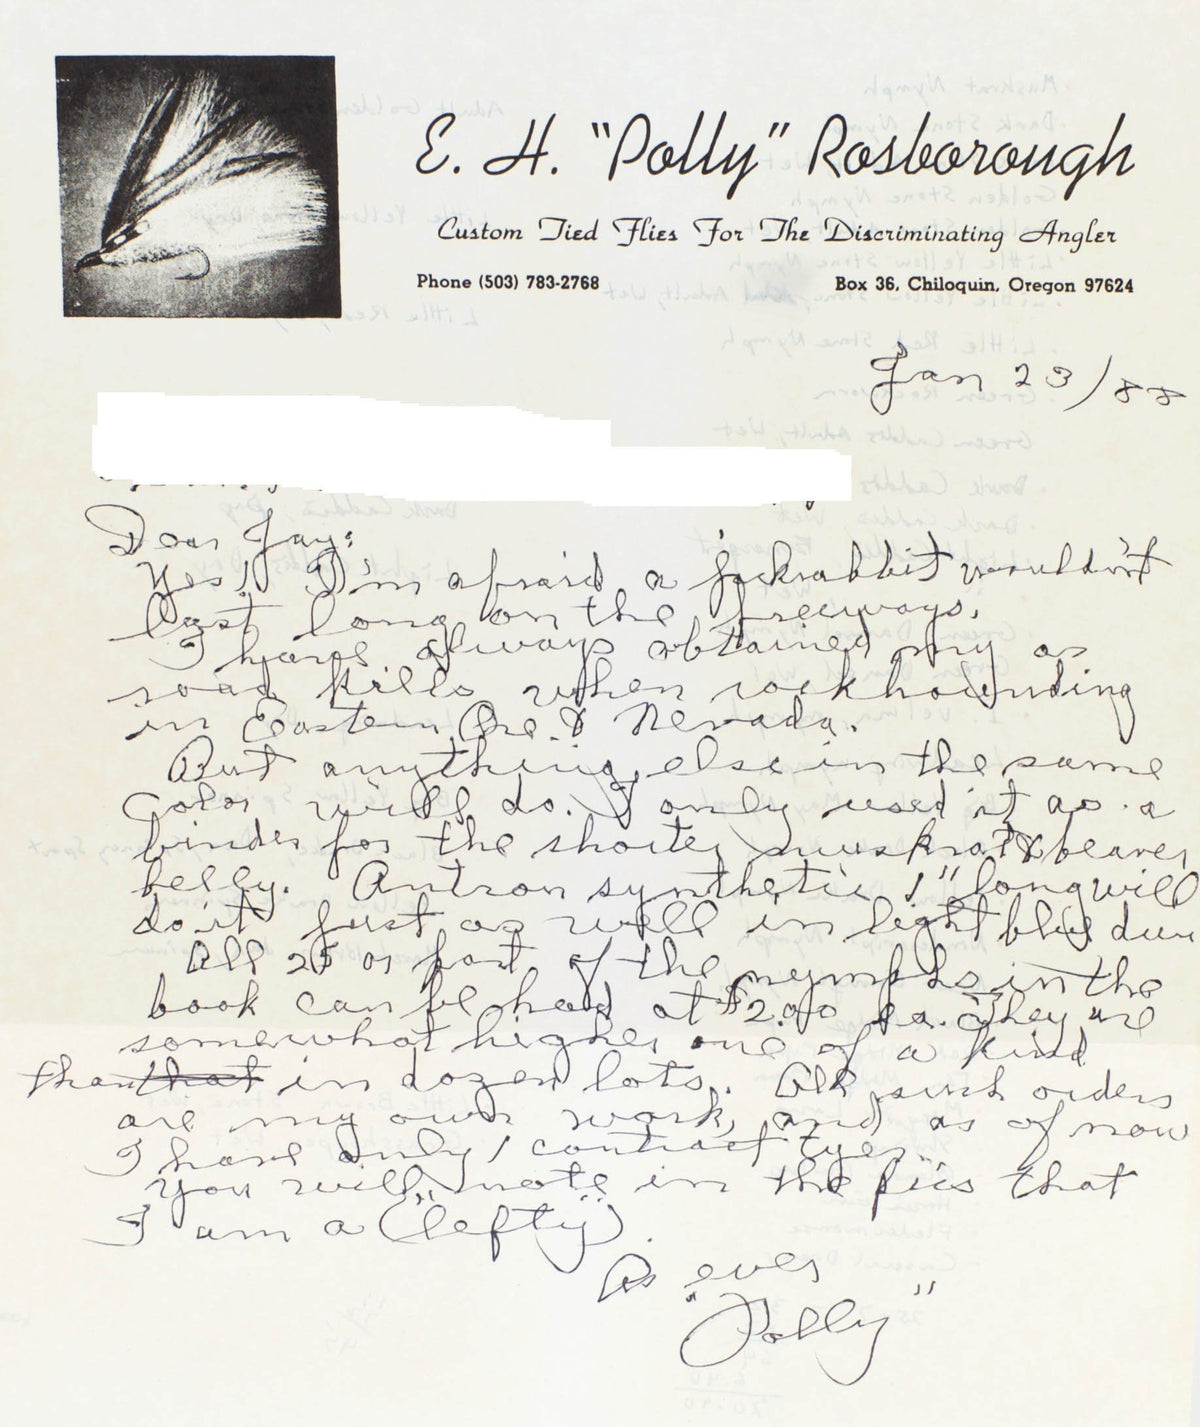 E. H. "Polly" Rosborough
Custom Tied Flies For The Discriminating Angler
Phone (503) 783-2768 Box 36, Chiloquin, Oregon 97624
Jan 23/88
Dear Jay:
Yes! I'm afraid a jackrabbit wouldn't
last long on the freeways.
I have always obtained my as
road kills when rockhounding
in Eastern Ore. & Nevada.
But anything else in the same
color will do. I only used it as a
binder for the shorter muskrat & beaver
belly. Antron synthetic 1" long will
do it just as well in light blue dun
All 25 or part of the nymphs in the
book can be had at $2.00 ea. They're
somewhat higher one of a kind
than that in dozen lots. All such orders
are my own work, and as of now
I have only 1 contract tyer.
You will note in the pics that
I am a ("lefty").
As ever
"Polly"